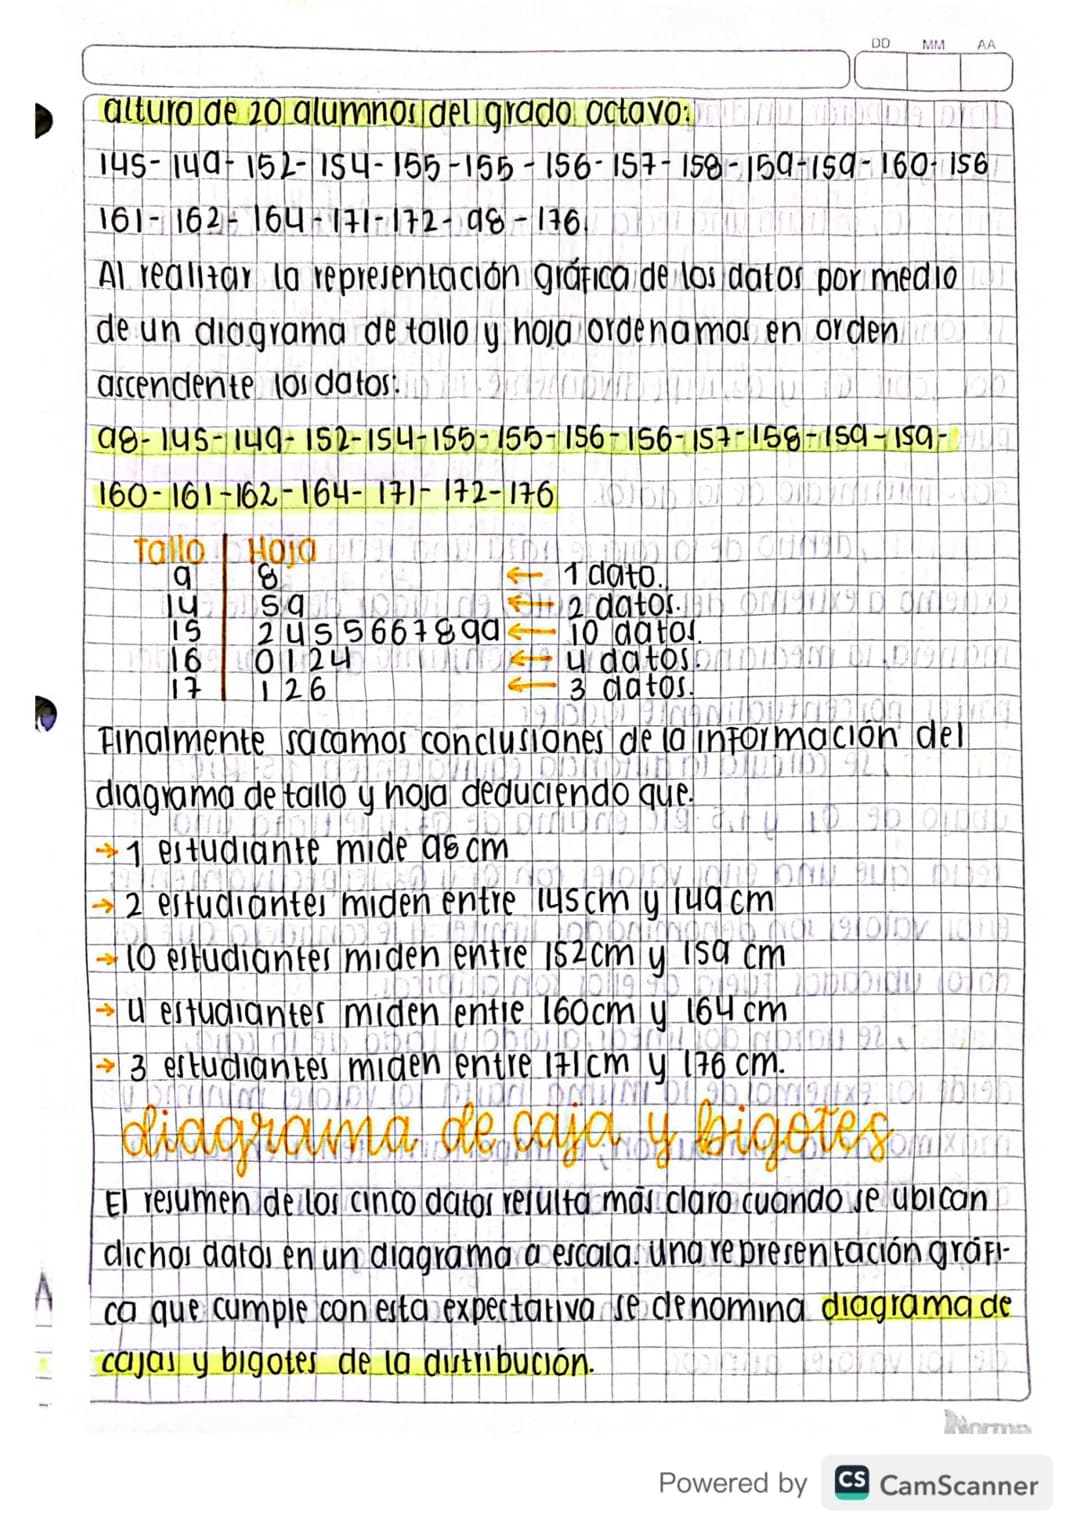 DD MM AA
altura de 20 alumnos del grado octavo:
145-149-152-154-155-155-156-157-158-159-159-160-156
161-162-164-171-172-98-176.
Al realizar la representación gráfica de los datos por medio
de un diagrama de tallo y hoja ordenamos en orden
ascendente los datos:
98-145-149-152-154-155-155-156-156-157-158-159-159-
160-161-162-164-171-172-176
Tallo Hoja
9 8 ← 1 dato.
14 59 ← 2 datos.
15 2455667899 ← 10 datos.
16 0124 ← 4 datos.
17 126 ← 3 datos.
Finalmente sacamos conclusiones de la información del
diagrama de tallo y hoja deduciendo que.
→ 1 estudiante mide 98 cm
→ 2 estudiantes miden entre 145cm y 149 cm
→ 10 estudiantes miden entre 152cm y 159 cm
→ 4 estudiantes miden entre 160cm y 164 cm
→ 3 estudiantes miden entre 171cm y 176 cm.
diagrama de caja y bigotes
El resumen de los cinco datos resulta más claro cuando se ubican
dichos datos en un diagrama a escala. una representación gráfi-
ca que cumple con esta expectativa se denomina diagrama de
cajas y bigotes de la distribución.
Norma
Powered by CS CamScanner